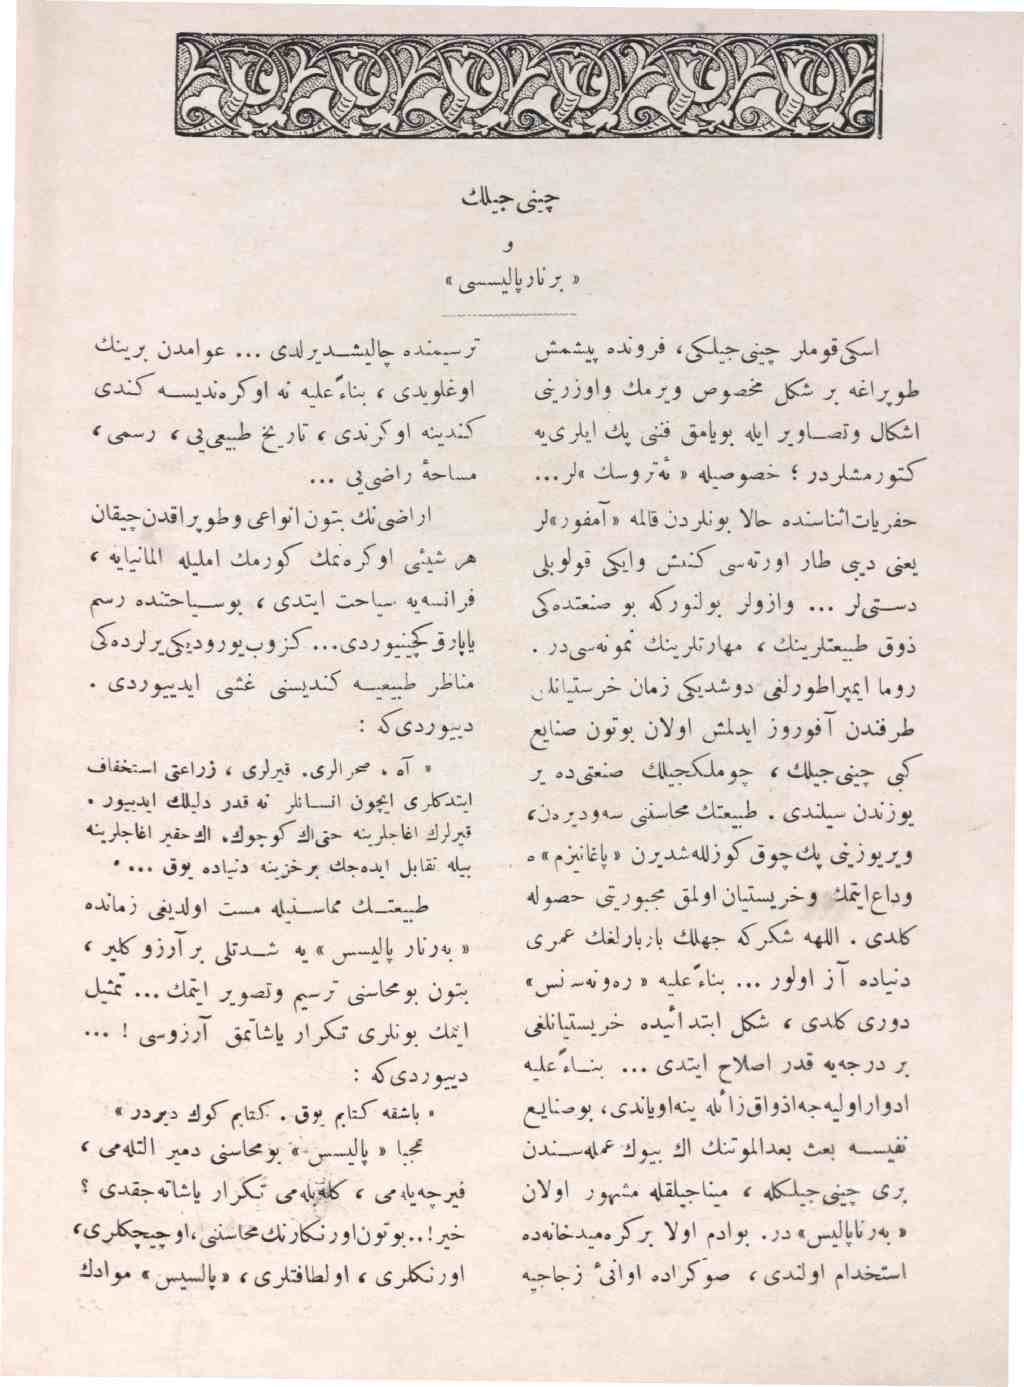 چینی جیلك
و
« برنار پالیسسی »
اسکی قوملر چینی جیلکی، فرونده پیشمش
طوپراغه بر شکل مخصوص ویرمك واوزرینی
اشکال وتصاویر ایله بویامق فننی پك ایلری یه
کتورمشلردر ؛ خصوصیله « ئه تروسك »لر...
حفریات اثناسنده حالا بونلردن قالمه « آمفور»لر
یعنی دیبی طار اورته سی کنیش وایکی قولوبلی
دستی لر ... وازولر بولنورکه بو صنعتده کی
ذوق طبیعتلرینك ، مهارتلرینك نمونه سی در .
روما ایمپراطورلغی دوشدیکی زمان خرستیانلر
طرفندن آفوروز ایدلمش اولان بوتون صنایع
کبی چینی جیلك ، چوملکجیلك صنعتی ده یر
یوزندن سیلندی . طبیعتك محاسننی سه ودیره ن،
ویریوزینی پك چوق کوزللشدیرن « پاغانیزم » ه
وداع ایتمك وخریستیان اولمق مجبوریتی حصوله
کلدی . اللهه شکرکه جهلك باربارلغك عمری
دنیاده آز اولور ... بناءً علیه « ره ونه سانس »
دوری کلدی ، شکل ابتدائیده خریستیانلغی
بر درجه یه قدر اصلاح ایتدی ... بناءً علیه
ادوار اولیه جه اذواق زائله ینه اویاندی، بوصنایع
نفیسه بعث بعدالموتنك اك بیوك عمله سندن
بری چینی جیلکله ، میناجیلقله مشهور اولان
« به رناپالیس» در. بوادم اولا برکره میدخانه ده
استخدام اولندی ، صوکراده اوانئ زجاجیه
ترسیمنده چالیشدیرلدی ... عوامدن برینك
اوغلویدی ، بناءً علیه نه اوکره ندیسه کندی
کندینه اوکرندی ، تاریخ طبیعی یی ، رسمی ،
مساحۀ راضی یی ...
اراضی نك بتون انواعی وطوپراقدن چیقان
هر شیئی اوکره نمك کورمك املیله المانیایه ،
فرانسه یه سیاحت ایتدی ، بوسیاحتنده رسم
یاپارق کچینیوردی... کزوب یورودیکی یرلرده کی
مناظر طبیعیه کندیسنی غشی ایدییوردی .
دییوردی که :
« آه . صحرالری. قیرلری ، زراعتی استخفاف
ایتدکلری ایچون انسانلر نه قدر دلیلك ایدییور .
قیرلرك اغاجلرینه حتی اك کوچوك، اك حقیر اغاجلرینه
بیله تقابل ایده جك برخزینه دنیاده یوق ... »
طبیعتك مماسنیله مست اولدیغی زمانده
« به رنار پالیسس » یه شدتلی بر آرزو کلیر ،
بتون بومحاسنی ترسیم وتصویر ایتمك ... تمثیل
ایتمك بونلری تکرار یاشاتمق آرزوسی ! ...
دییوردی که :
« باشقه کتابم یوق . کتابم کوك دیردر »
عجبا « پالیسس » بومحاسنی دمیر التله می ،
فیرچه یله می ، کله بله می تکرار یاشاته جقدی ؟
خیر!.. بوتون اورنکارنك محاسننی، اوچیچکلری،
اورنکلری ، اولطافتلری ، «پالسیس» موادك